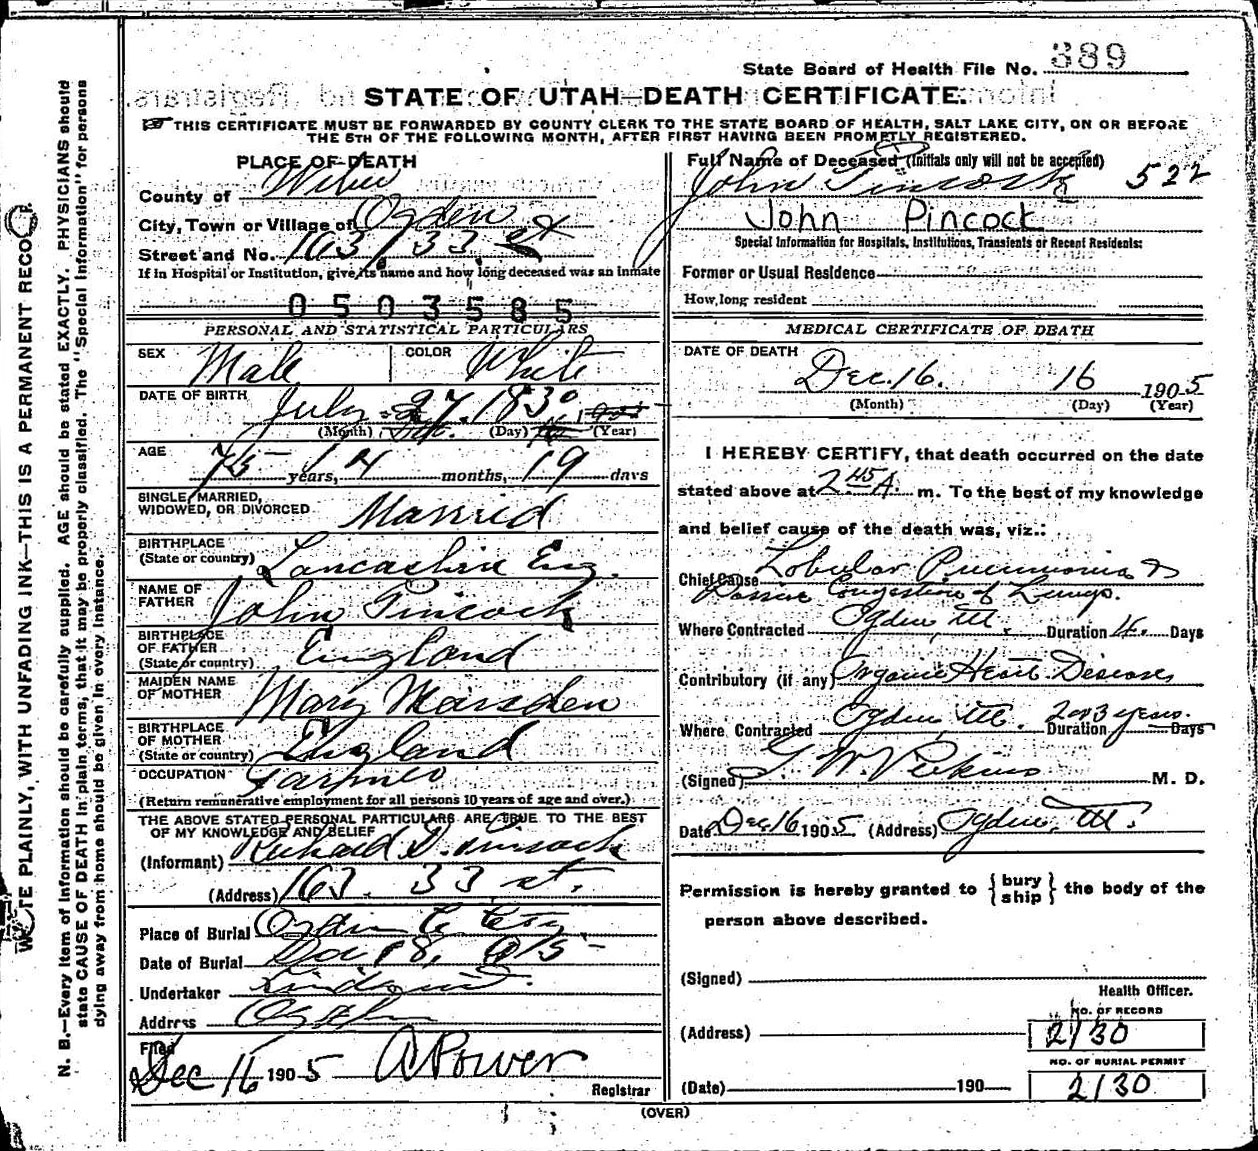 State Board of Health File No. 389
STATE OF UTAH—DEATH CERTIFICATE.
THIS CERTIFICATE MUST BE FORWARDED BY COUNTY CLERK TO THE STATE BOARD OF HEALTH, SALT LAKE CITY, ON OR BEFORE
THE 5TH OF THE FOLLOWING MONTH, AFTER FIRST HAVING BEEN PROMPTLY REGISTERED.
WRITE PLAINLY, WITH UNFADING INK—THIS IS A PERMANENT RECORD.
N. B.—Every item of information should be carefully supplied. AGE should be stated EXACTLY. PHYSICIANS should
state CAUSE OF DEATH in plain terms, that it may be properly classified. The "Special Information" for persons
dying away from home should be given in every instance.
PLACE OF DEATH
County of Weber
City, Town or Village of Ogden
Street and No. 163 / 33 st
If in Hospital or Institution, give its name and how long deceased was an inmate
0503585
PERSONAL AND STATISTICAL PARTICULARS
SEX Male COLOR White
DATE OF BIRTH July 27 1830
(Month) (Day) (Year)
AGE 75 years, 4 months, 19 days
SINGLE, MARRIED,
WIDOWED, OR DIVORCED Married
BIRTHPLACE
(State or country) Lancashire Eng.
NAME OF
FATHER John Pincock
BIRTHPLACE
OF FATHER
(State or country) England
MAIDEN NAME
OF MOTHER Mary Marsden
BIRTHPLACE
OF MOTHER
(State or country) England
OCCUPATION Farmer
(Return remunerative employment for all persons 10 years of age and over.)
THE ABOVE STATED PERSONAL PARTICULARS ARE TRUE TO THE BEST
OF MY KNOWLEDGE AND BELIEF
(Informant) Richard D. Pincock
(Address) 163. 33 st.
Place of Burial Ogden C. Cety
Date of Burial Dec 18, 1905
Undertaker Lindquist
Address Ogden
Filed
Dec 16 1905 A Power
Registrar
Full Name of Deceased (Initials only will not be accepted)
John Pincock 522
John Pincock
Special Information for Hospitals, Institutions, Transients or Recent Residents:
Former or Usual Residence
How long resident
MEDICAL CERTIFICATE OF DEATH
DATE OF DEATH
Dec. 16. 16 1905
(Month) (Day) (Year)
I HEREBY CERTIFY, that death occurred on the date
stated above at 2 45 A. m. To the best of my knowledge
and belief cause of the death was, viz.:
Chief Cause Lobular Pneumonia &
Passive Congestion of Lungs.
Where Contracted Ogden, Ut. Duration 14 Days
Contributory (if any) Organic Heart Disease
Where Contracted Ogden, Ut. Duration 2 or 3 years. Days
(Signed) G. W. Perkins M. D.
Date Dec 16 1905 (Address) Ogden, Ut.
Permission is hereby granted to {bury ship} the body of the
person above described.
(Signed)
Health Officer.
(Address)
NO. OF RECORD
2130
NO. OF BURIAL PERMIT
2130
(Date) 190
(OVER)